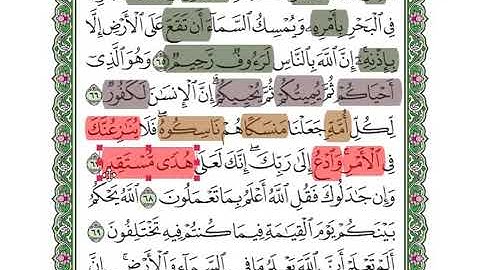 فِي ٱلْبَحْرِ بِأَمْرِهِۦ وَيُمْسِكُ ٱلسَّمَآءَ أَن تَقَعَ عَلَى ٱلْأَرْضِ إِلَّا
بِإِذْنِهِۦٓ ۗ إِنَّ ٱللَّهَ بِٱلنَّاسِ لَرَءُوفٌ رَّحِيمٌ ٦٥ وَهُوَ ٱلَّذِىٓ
أَحْيَاكُمْ ثُمَّ يُمِيتُكُمْ ثُمَّ يُحْيِيكُمْ ۗ إِنَّ ٱلْإِنسَٰنَ لَكَفُورٌ ٦٦
لِّكُلِّ أُمَّةٍ جَعَلْنَا مَنسَكًا هُمْ نَاسِكُوهُ ۖ فَلَا يُنَٰزِعُنَّكَ
فِى ٱلْأَمْرِ ۚ وَٱدْعُ إِلَىٰ رَبِّكَ ۖ إِنَّكَ لَعَلَىٰ هُدًى مُّسْتَقِيمٍ ٦٧
وَإِن جَٰدَلُوكَ فَقُلِ ٱللَّهُ أَعْلَمُ بِمَا تَعْمَلُونَ ٦٨ ٱللَّهُ يَحْكُمُ
بَيْنَكُمْ يَوْمَ ٱلْقِيَٰمَةِ فِيمَا كُنتُمْ فِيهِ تَخْتَلِفُونَ ٦٩
أَلَمْ تَعْلَمْ أَنَّ ٱللَّهَ يَعْلَمُ مَا فِى ٱلسَّمَآءِ وَٱلْأَرْضِ ۗ إِنَّ